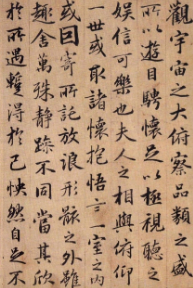 觀宇宙之大俯察品類之盛
所以遊目騁懷足以極視聽之
娛信可樂也夫人之相與俯仰
一世或取諸懷抱悟言一室之內
或因寄所託放浪形骸之外雖
趣舍萬殊静躁不同當其欣
於所遇蹔得於己怏然自足不